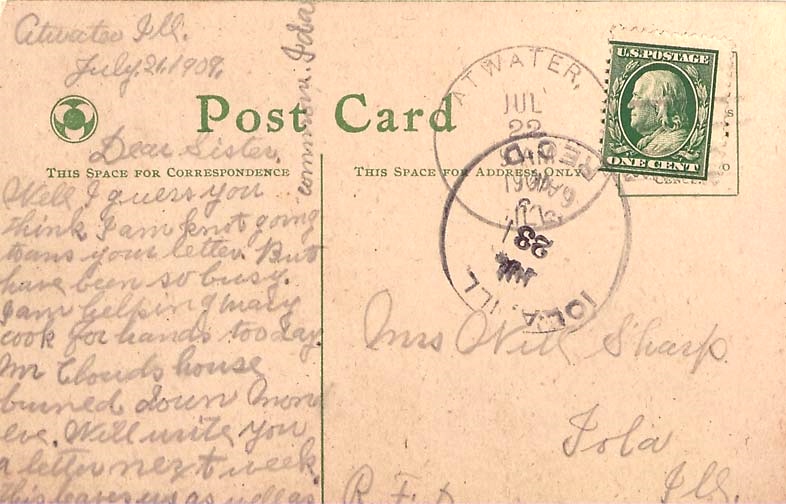 Atwater Ill.
July. 21. 1909.
Post Card
U.S. POSTAGE
ONE CENT
ATWATER,
JUL
22
REC'D
JUL
23
IOLA, ILL
THIS SPACE FOR CORRESPONDENCE
THIS SPACE FOR ADDRESS ONLY
Dear Sister,
Well I guess you
think I am knot going
to ans your letter. But
have been so busy.
I am helping Mary
cook for hands tooday.
Mr Clouds house
burned down Mond
eve. Will write you
a letter next week.
this leaves us as well as
common. Ida
Mrs Will Sharp
Iola
Ill.
R. F. D